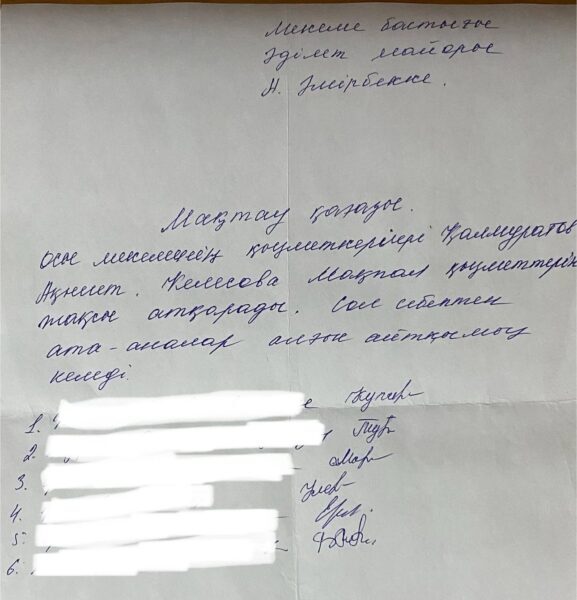 Мекеме бастығы
Әділет майоры
А. Әмірбекке.
Мақтау қағазы.
Осы мекеменің қызметкерлері Қалмуратов
Ақниет. Келесова Мақпал қызметтерін
жақсы атқарады. Сол себептен
ата-аналар алғыс айтқымыз
келеді.
1.
2.
3.
4.
5.
6.